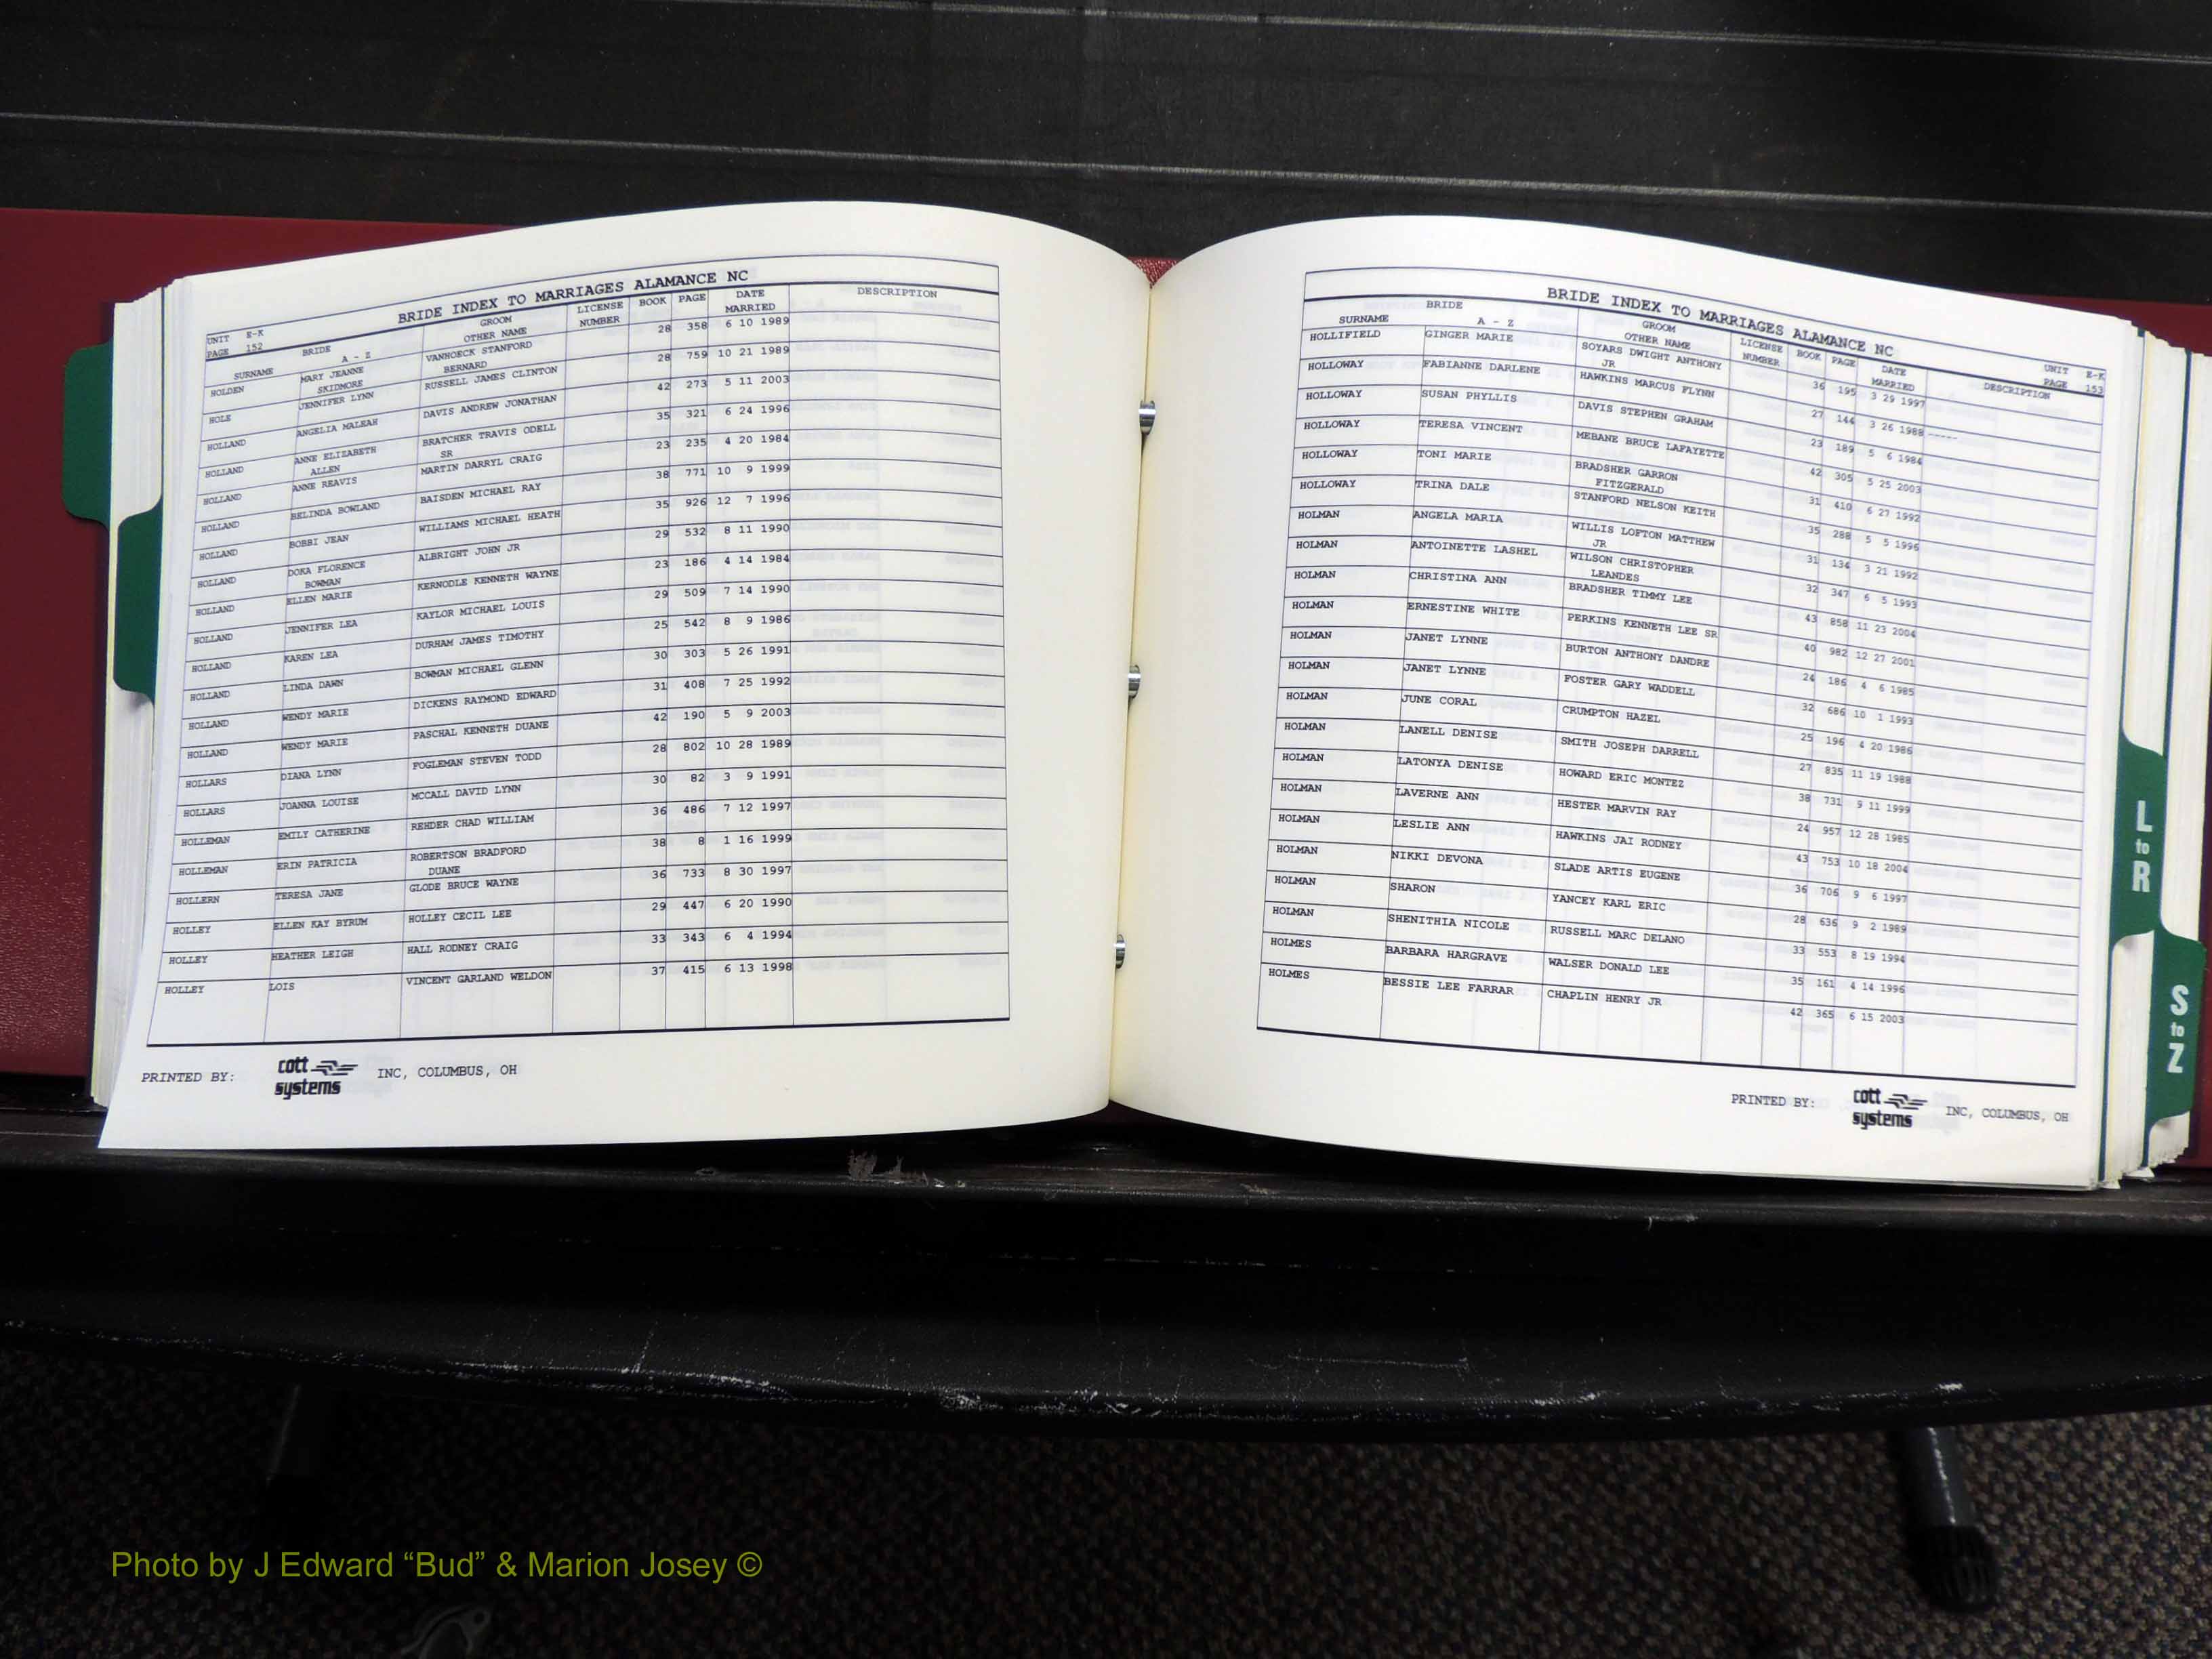 BRIDE INDEX TO MARRIAGES ALAMANCE NC
UNIT E-K
PAGE 152
SURNAME BRIDE A - Z GROOM OTHER NAME LICENSE NUMBER BOOK PAGE DATE MARRIED DESCRIPTION
HOLDEN MARY JEANNE VANHOECK STANFORD 28 358 6 10 1989
SKIDMORE BERNARD
HOLE JENNIFER LYNN RUSSELL JAMES CLINTON 28 759 10 21 1989
HOLLAND ANGELIA MALEAH DAVIS ANDREW JONATHAN 42 273 5 11 2003
HOLLAND ANNE ELIZABETH BRATCHER TRAVIS ODELL 35 321 6 24 1996
ALLEN SR
HOLLAND ANNE REAVIS MARTIN DARRYL CRAIG 23 235 4 20 1984
HOLLAND BELINDA BOWLAND BAISDEN MICHAEL RAY 38 771 10 9 1999
HOLLAND BOBBI JEAN WILLIAMS MICHAEL HEATH 35 926 12 7 1996
HOLLAND DOKA FLORENCE ALBRIGHT JOHN JR 29 532 8 11 1990
BOWMAN
HOLLAND ELLEN MARIE KERNODLE KENNETH WAYNE 23 186 4 14 1984
HOLLAND JENNIFER LEA KAYLOR MICHAEL LOUIS 29 509 7 14 1990
HOLLAND KAREN LEA DURHAM JAMES TIMOTHY 25 542 8 9 1986
HOLLAND LINDA DAWN BOWMAN MICHAEL GLENN 30 303 5 26 1991
HOLLAND WENDY MARIE DICKENS RAYMOND EDWARD 31 408 7 25 1992
HOLLAND WENDY MARIE PASCHAL KENNETH DUANE 42 190 5 9 2003
HOLLARS DIANA LYNN FOGLEMAN STEVEN TODD 28 802 10 28 1989
HOLLARS JOANNA LOUISE MCCALL DAVID LYNN 30 82 3 9 1991
HOLLEMAN EMILY CATHERINE REHDER CHAD WILLIAM 36 486 7 12 1997
HOLLEMAN ERIN PATRICIA ROBERTSON BRADFORD 38 8 1 16 1999
DUANE
HOLLERN TERESA JANE GLODE BRUCE WAYNE 36 733 8 30 1997
HOLLEY ELLEN KAY BYRUM HOLLEY CECIL LEE 29 447 6 20 1990
HOLLEY HEATHER LEIGH HALL RODNEY CRAIG 33 343 6 4 1994
HOLLEY LOIS VINCENT GARLAND WELDON 37 415 6 13 1998
PRINTED BY: cott systems INC, COLUMBUS, OH
BRIDE INDEX TO MARRIAGES ALAMANCE NC
UNIT E-K
PAGE 153
SURNAME BRIDE A - Z GROOM OTHER NAME LICENSE NUMBER BOOK PAGE DATE MARRIED DESCRIPTION
HOLLIFIELD GINGER MARIE SOYARS DWIGHT ANTHONY 36 195 3 29 1997
JR
HOLLOWAY FABIANNE DARLENE HAWKINS MARCUS FLYNN 27 144 3 26 1988 -----
HOLLOWAY SUSAN PHYLLIS DAVIS STEPHEN GRAHAM 23 189 5 6 1984
HOLLOWAY TERESA VINCENT MEBANE BRUCE LAFAYETTE 42 305 5 25 2003
HOLLOWAY TONI MARIE BRADSHER GARRON 31 410 6 27 1992
FITZGERALD
HOLLOWAY TRINA DALE STANFORD NELSON KEITH 35 288 5 5 1996
HOLMAN ANGELA MARIA WILLIS LOFTON MATTHEW 31 134 3 21 1992
JR
HOLMAN ANTOINETTE LASHEL WILSON CHRISTOPHER 32 347 6 5 1993
LEANDES
HOLMAN CHRISTINA ANN BRADSHER TIMMY LEE 43 858 11 23 2004
HOLMAN ERNESTINE WHITE PERKINS KENNETH LEE SR 40 982 12 27 2001
HOLMAN JANET LYNNE BURTON ANTHONY DANDRE 24 186 4 6 1985
HOLMAN JANET LYNNE FOSTER GARY WADDELL 32 686 10 1 1993
HOLMAN JUNE CORAL CRUMPTON HAZEL 25 196 4 20 1986
HOLMAN LANELL DENISE SMITH JOSEPH DARRELL 27 835 11 19 1988
HOLMAN LATONYA DENISE HOWARD ERIC MONTEZ 38 731 9 11 1999
HOLMAN LAVERNE ANN HESTER MARVIN RAY 24 957 12 28 1985
HOLMAN LESLIE ANN HAWKINS JAI RODNEY 43 753 10 18 2004
HOLMAN NIKKI DEVONA SLADE ARTIS EUGENE 36 706 9 6 1997
HOLMAN SHARON YANCEY KARL ERIC 28 636 9 2 1989
HOLMAN SHENITHIA NICOLE RUSSELL MARC DELANO 33 553 8 19 1994
HOLMES BARBARA HARGRAVE WALSER DONALD LEE 35 161 4 14 1996
HOLMES BESSIE LEE FARRAR CHAPLIN HENRY JR 42 365 6 15 2003
PRINTED BY: cott systems INC, COLUMBUS, OH
L to R
S to Z
Photo by J Edward “Bud” & Marion Josey ©